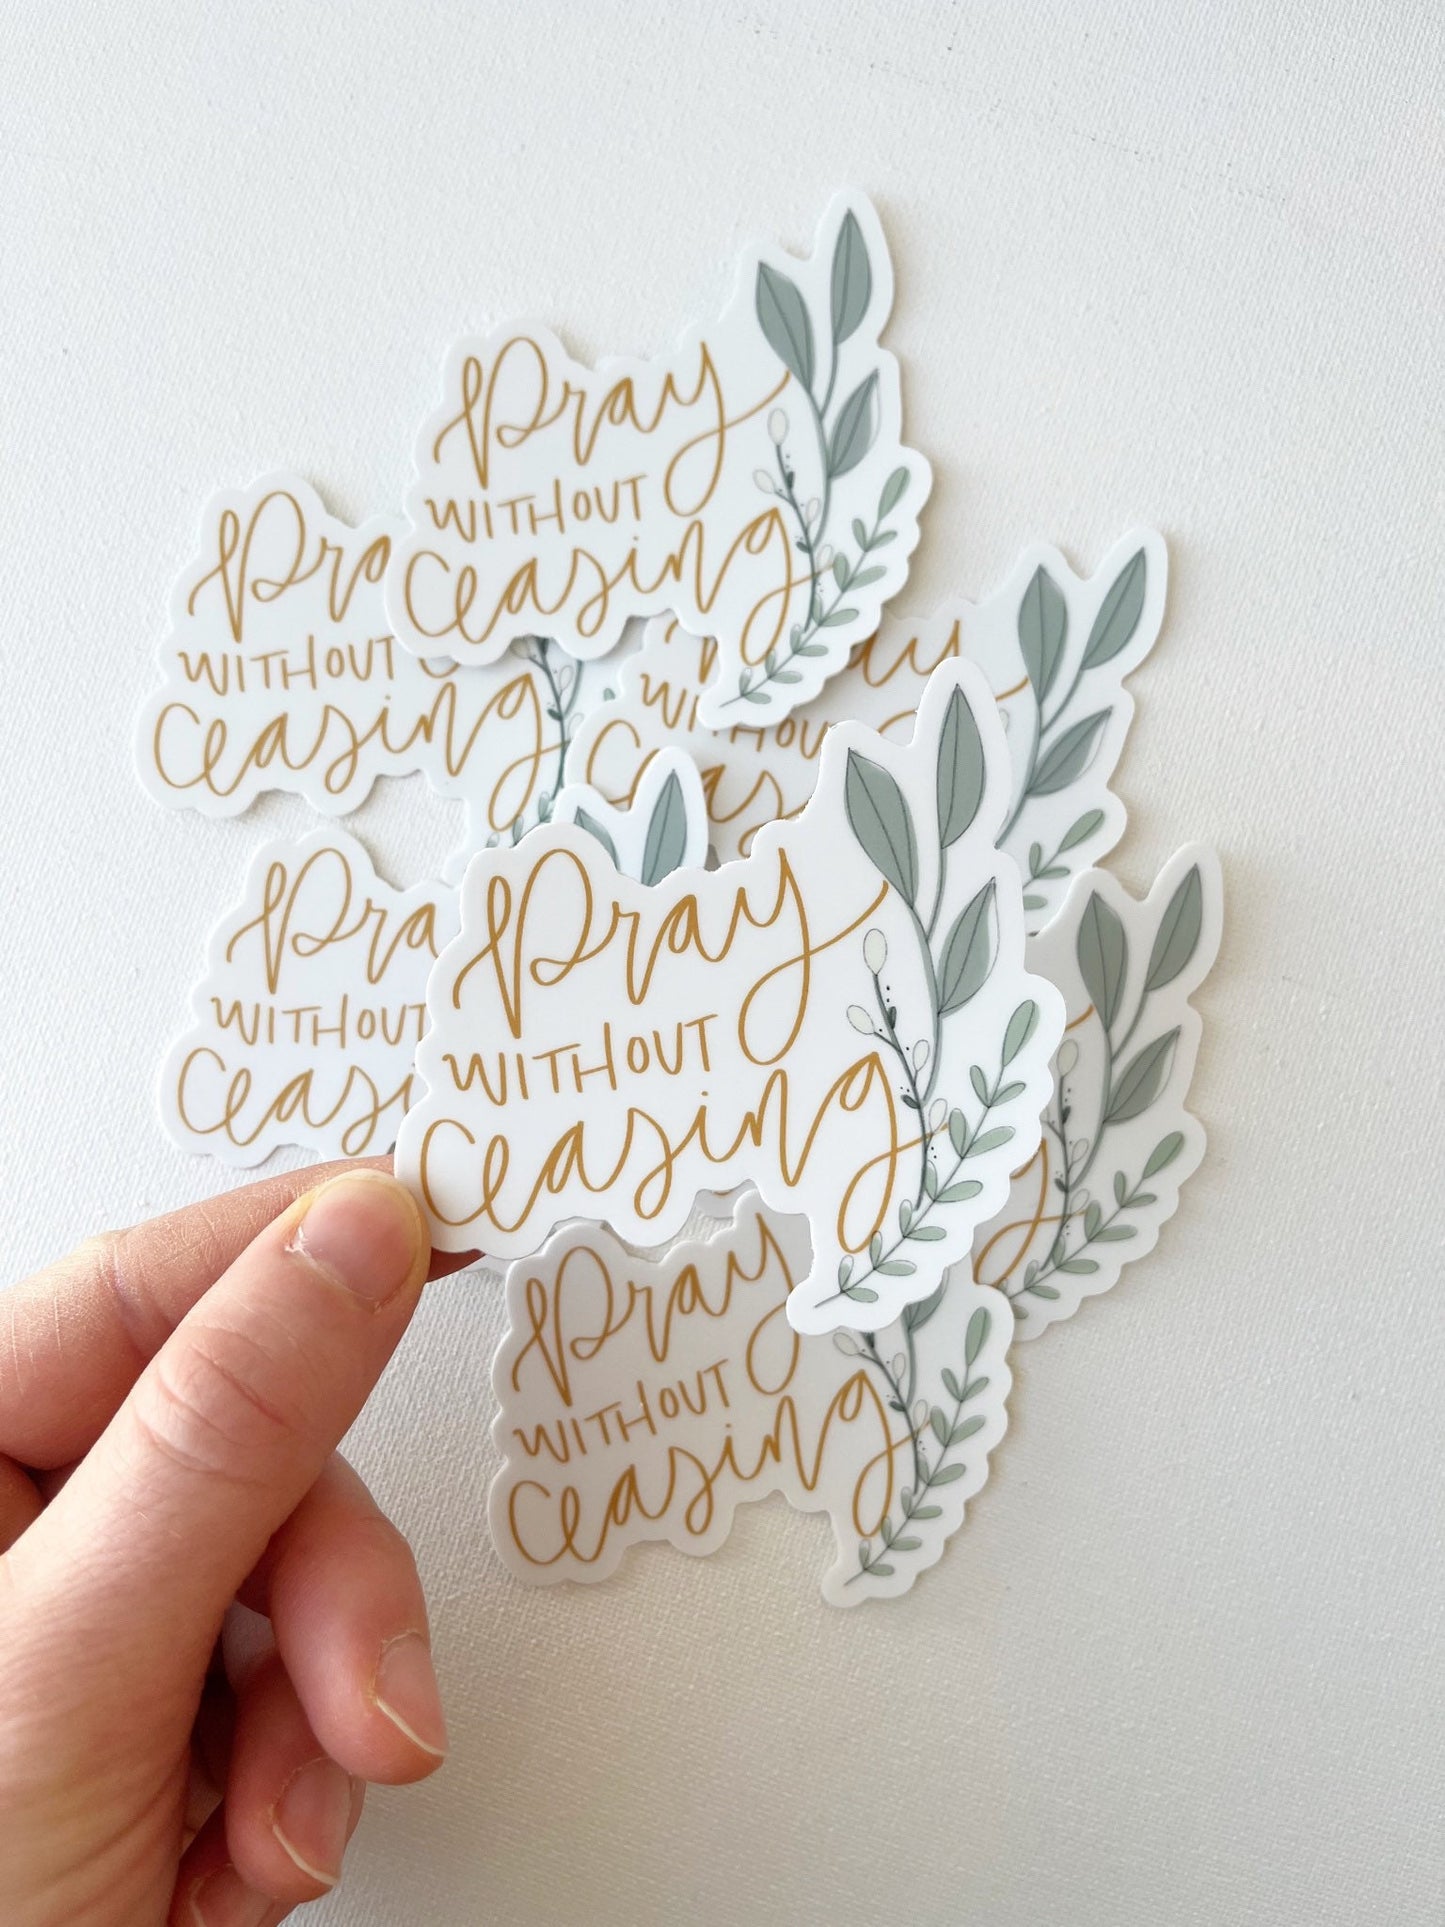 Pray
WITHOUT
Ceasing
Pra
WITHOUT
Ceasing
ay
WITHOU
Ceas
Pra
WITHOUT
Ceasi
Pray
WITHOUT
Ceasing
g
Pray
WITHOUT
Ceasing